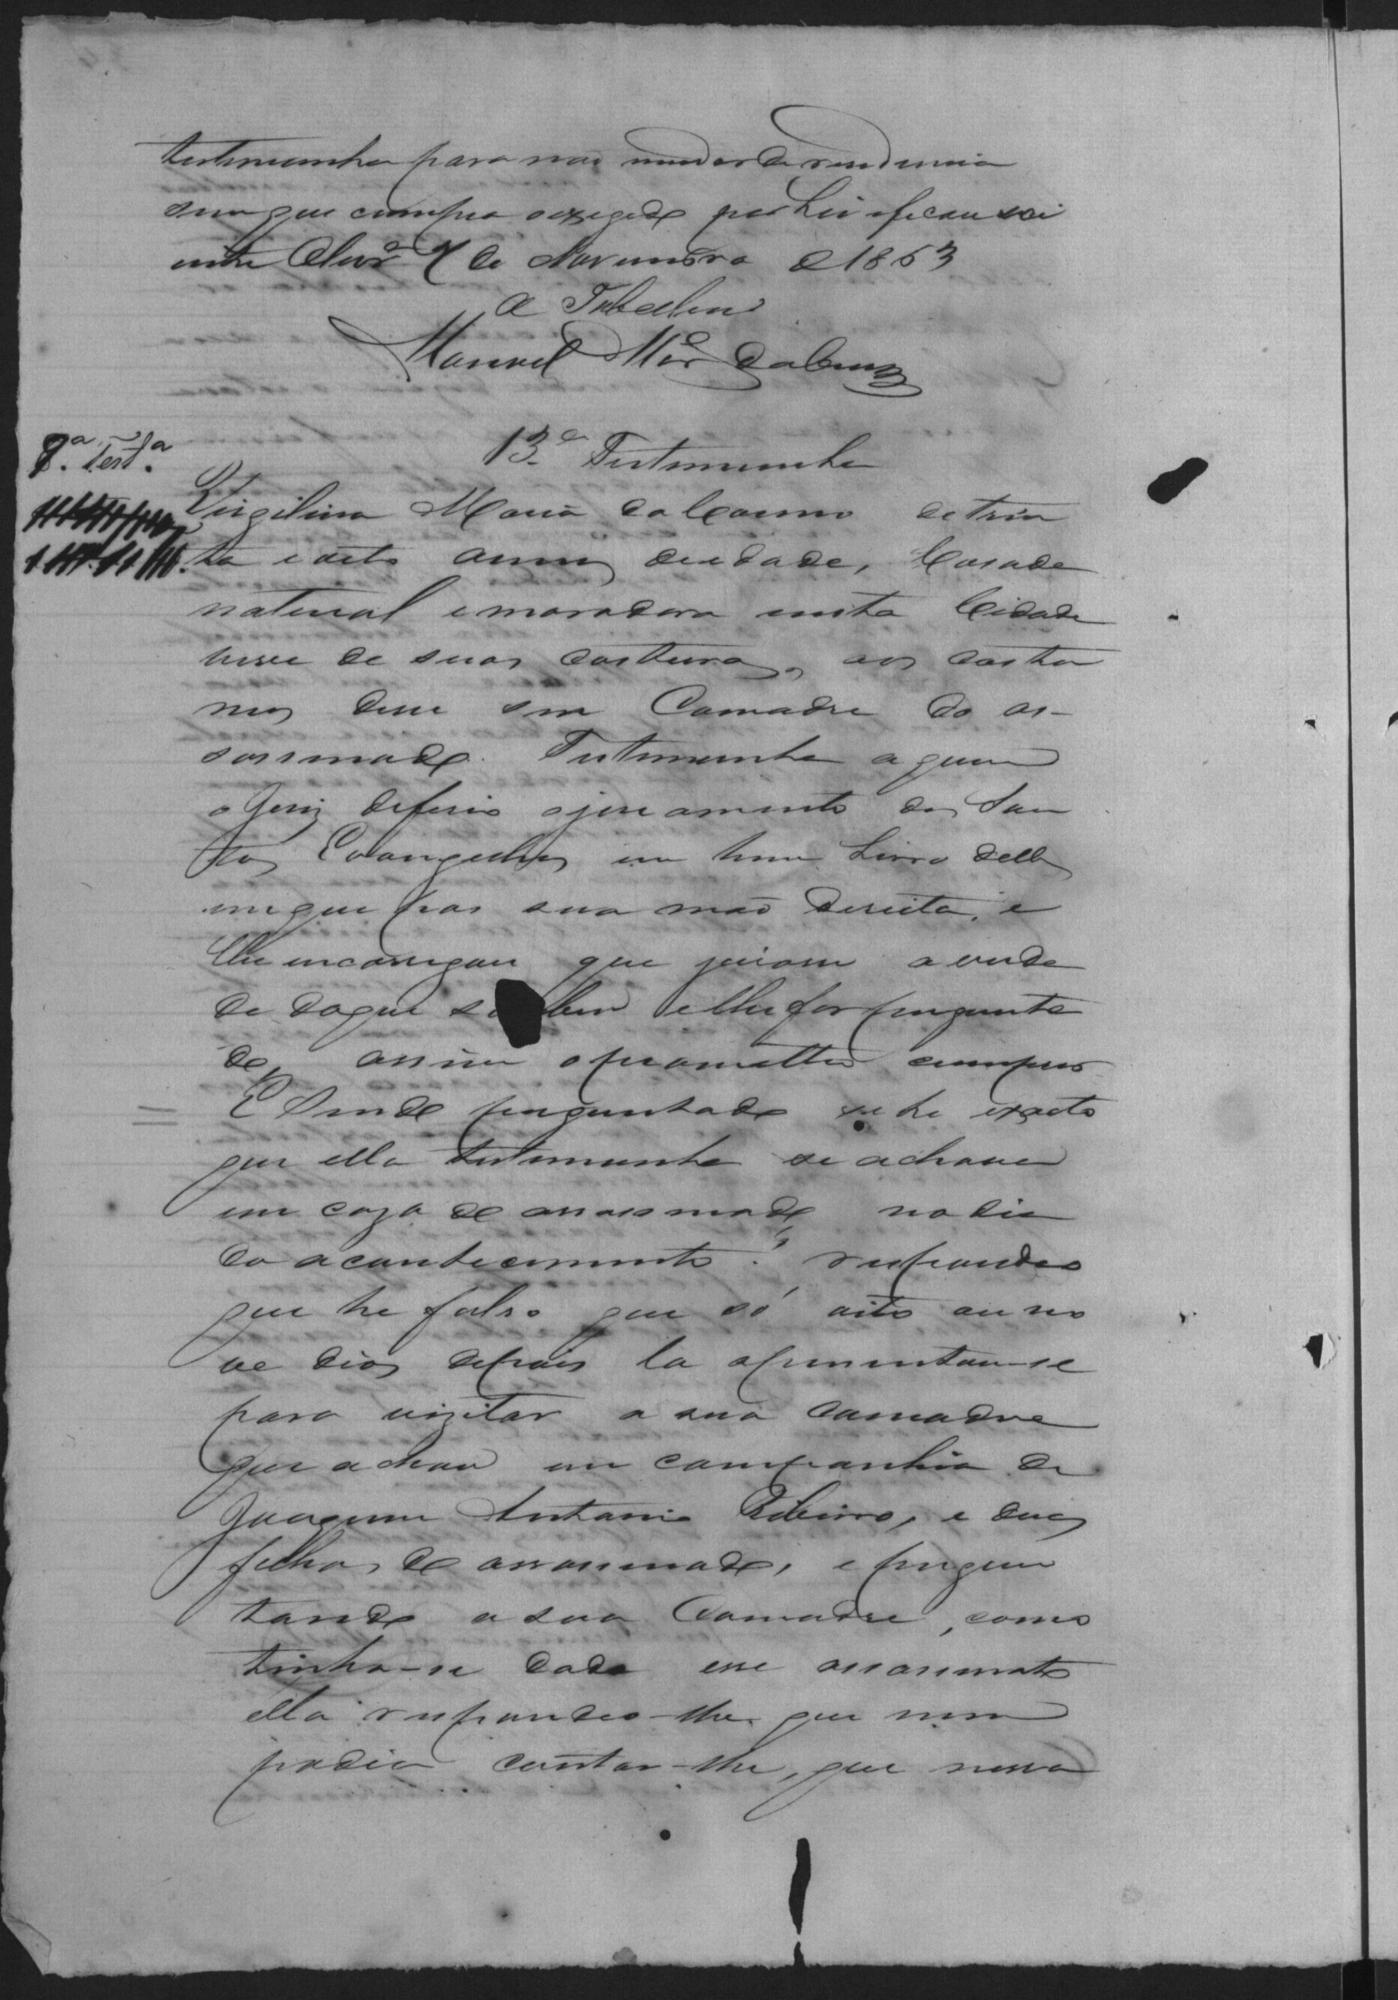 testimunha para não mudar de residencia
sem que cumpra o exegido por Lei e ficou sci
ente 7 de Novembro de 1863
O Tabelião
Manoel
8.ª Test.ª
13.ª Testimunha
Virgilina Maria do Carmo de trin
ta e oito annos de idade, Casada
natural e moradora nesta Cidade
vive de suas costuras, aos costu
mes disse ser Comadre do as-
sassinado. Testimunha a quem
o Juiz deferio o juramento dos San
tos Evangelhos em hum Livro delles
em que pos sua mão direita, e
lhe encarregou que jurasse a verda
de do que souber e lhe for pergunta
do, assim o prometteu cumprir
E sendo perguntado se he exacto
que ella testimunha se achava
em caza do assassinado no dia
do acontecimento? respondeo
que he falso que só oito ou no
ve dias depois la apresentou-se
para vizitar a sua comadre
que achou em companhia de
Joaquim Antonio Ribeiro, e dous
filhos do assassinado, e pergun
tando a sua Comadre, como
tinha-se dado esse assassinato
ella respondeo-lhe que nem
podia contar-lhe, que nessa